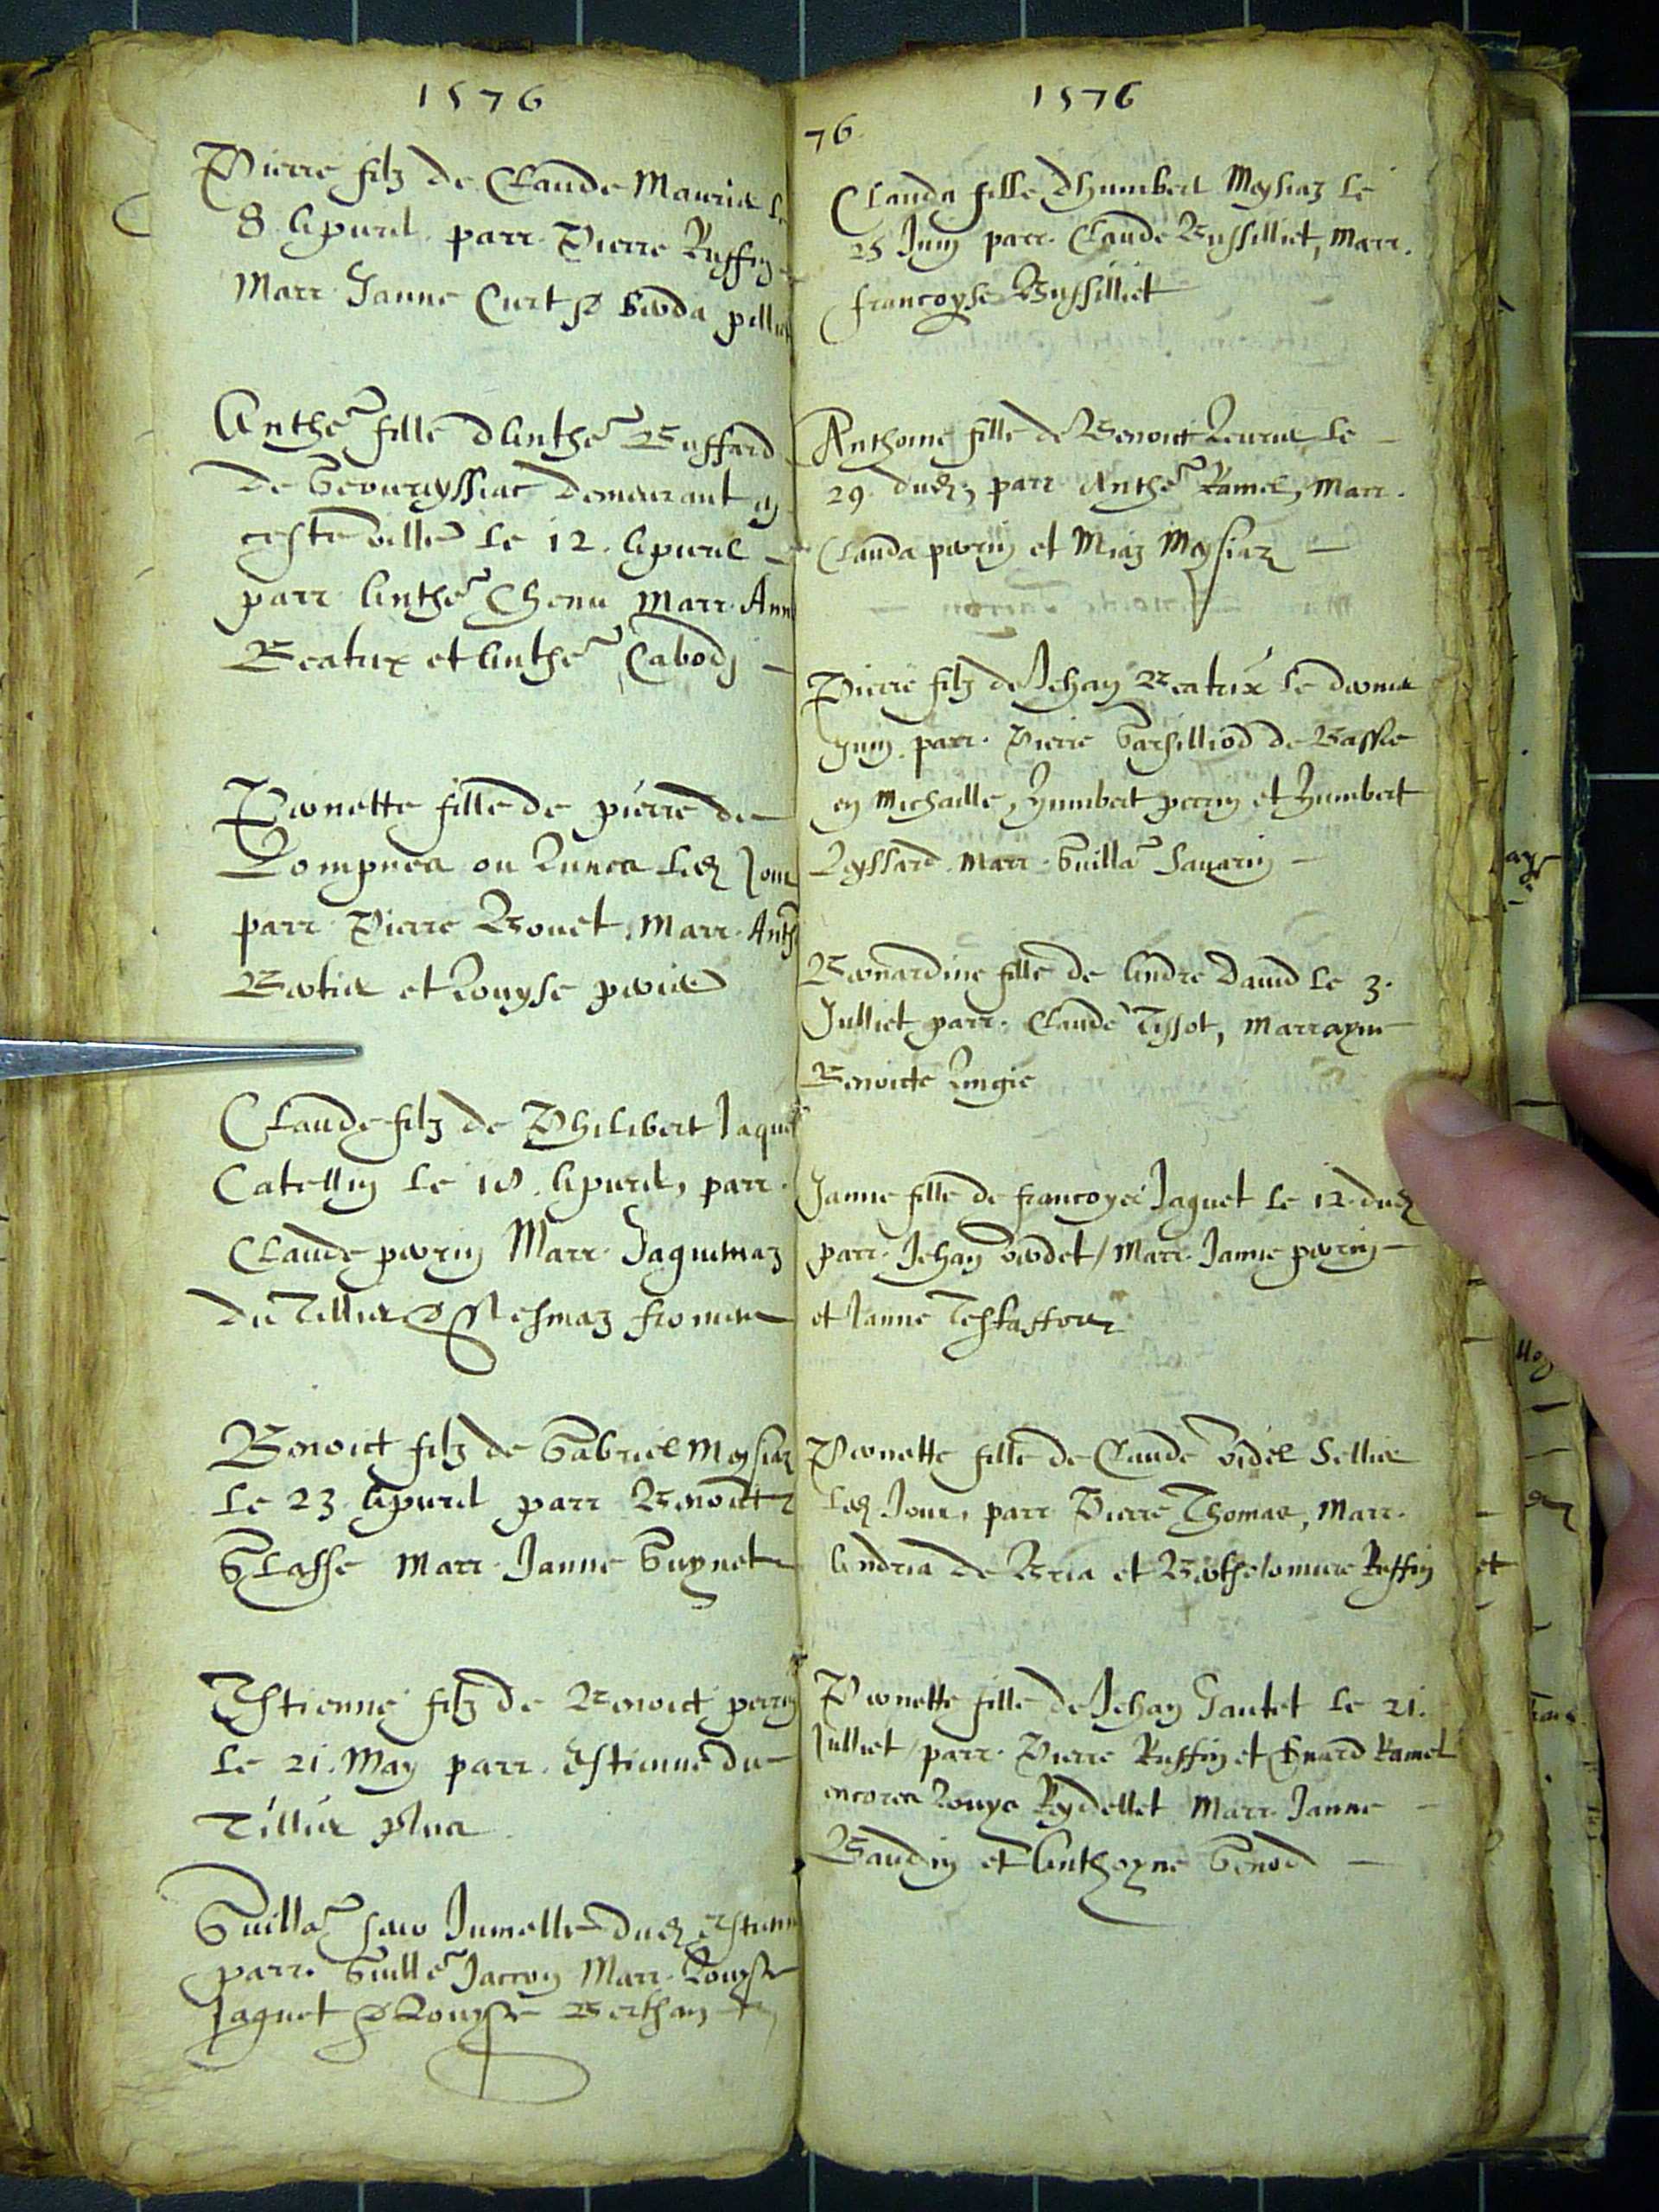 1576
Pierre filz de Claude Maurier le
8. Apvril. parr. Pierre Ruffin
Marr Janne Curt &
Anthe fille d'Anthe Buffard
de demeurant en
ceste ville le 12. Apvril
parr Anthe Chenu Marr. Ann
Beatrix et Anthe Cabodi
Pernette fille de pierre de
Lompnes ou Lunes led Jour
parr Pierre Bouet, Marr. Anth
Bertier et Louyse perier
Claude filz de Philibert Jaquet
Catellin Le 18. Apvril, parr.
Claude perrin Marr. Jaquemaz
du Tillier &
Benoict filz de Gabriel Meysiaz
Le 23. Apvril parr Benoict
Glasse Marr. Janne Guynet
Estienne filz de Benoict perrin
Le 21. May parr. Estienne du
Tillier
Guilla saeur Jumelle dud Estienne
parr. Guille Jarron Marr. Louyse
Jaquet & Louyse Berthan
1576
76.
Clauda fille d'humbert Meysiaz le
25 Juin parr. Claude Bussilliet, Marr.
francoyse Bussilliet
Anthoine fille de Benoict Leurier le
29. dud, parr Anthe Ramel, Marr.
Clauda perrin et Miaz Meysiaz
Pierre filz de Jehan Beatrix le dernier
Juin. parr. Pierre de
en Michaille, humbert perrin et humbert
Leyssard. Marr. Guilla Savarin
Bernardine fille de Andre David le 3.
Julliet parr. Claude Tissot, Marrayne
Benoicte
Janne fille de francoyes Jaquet le 12. dud
parr. Jehan verdet / Marr. Janne perrin
et Janne
Pernette fille de Claude videl Sellier
led Jour, parr Pierre Thomas, Marr.
Andria de Bria et Bertholomiere Ruffin
Pernette fille de Jehan Gautet le 21.
Julliet / parr. Pierre Ruffin et Ramel
encores Louys Reydellet Marr. Janne
Baudin et Anthoyne Genod